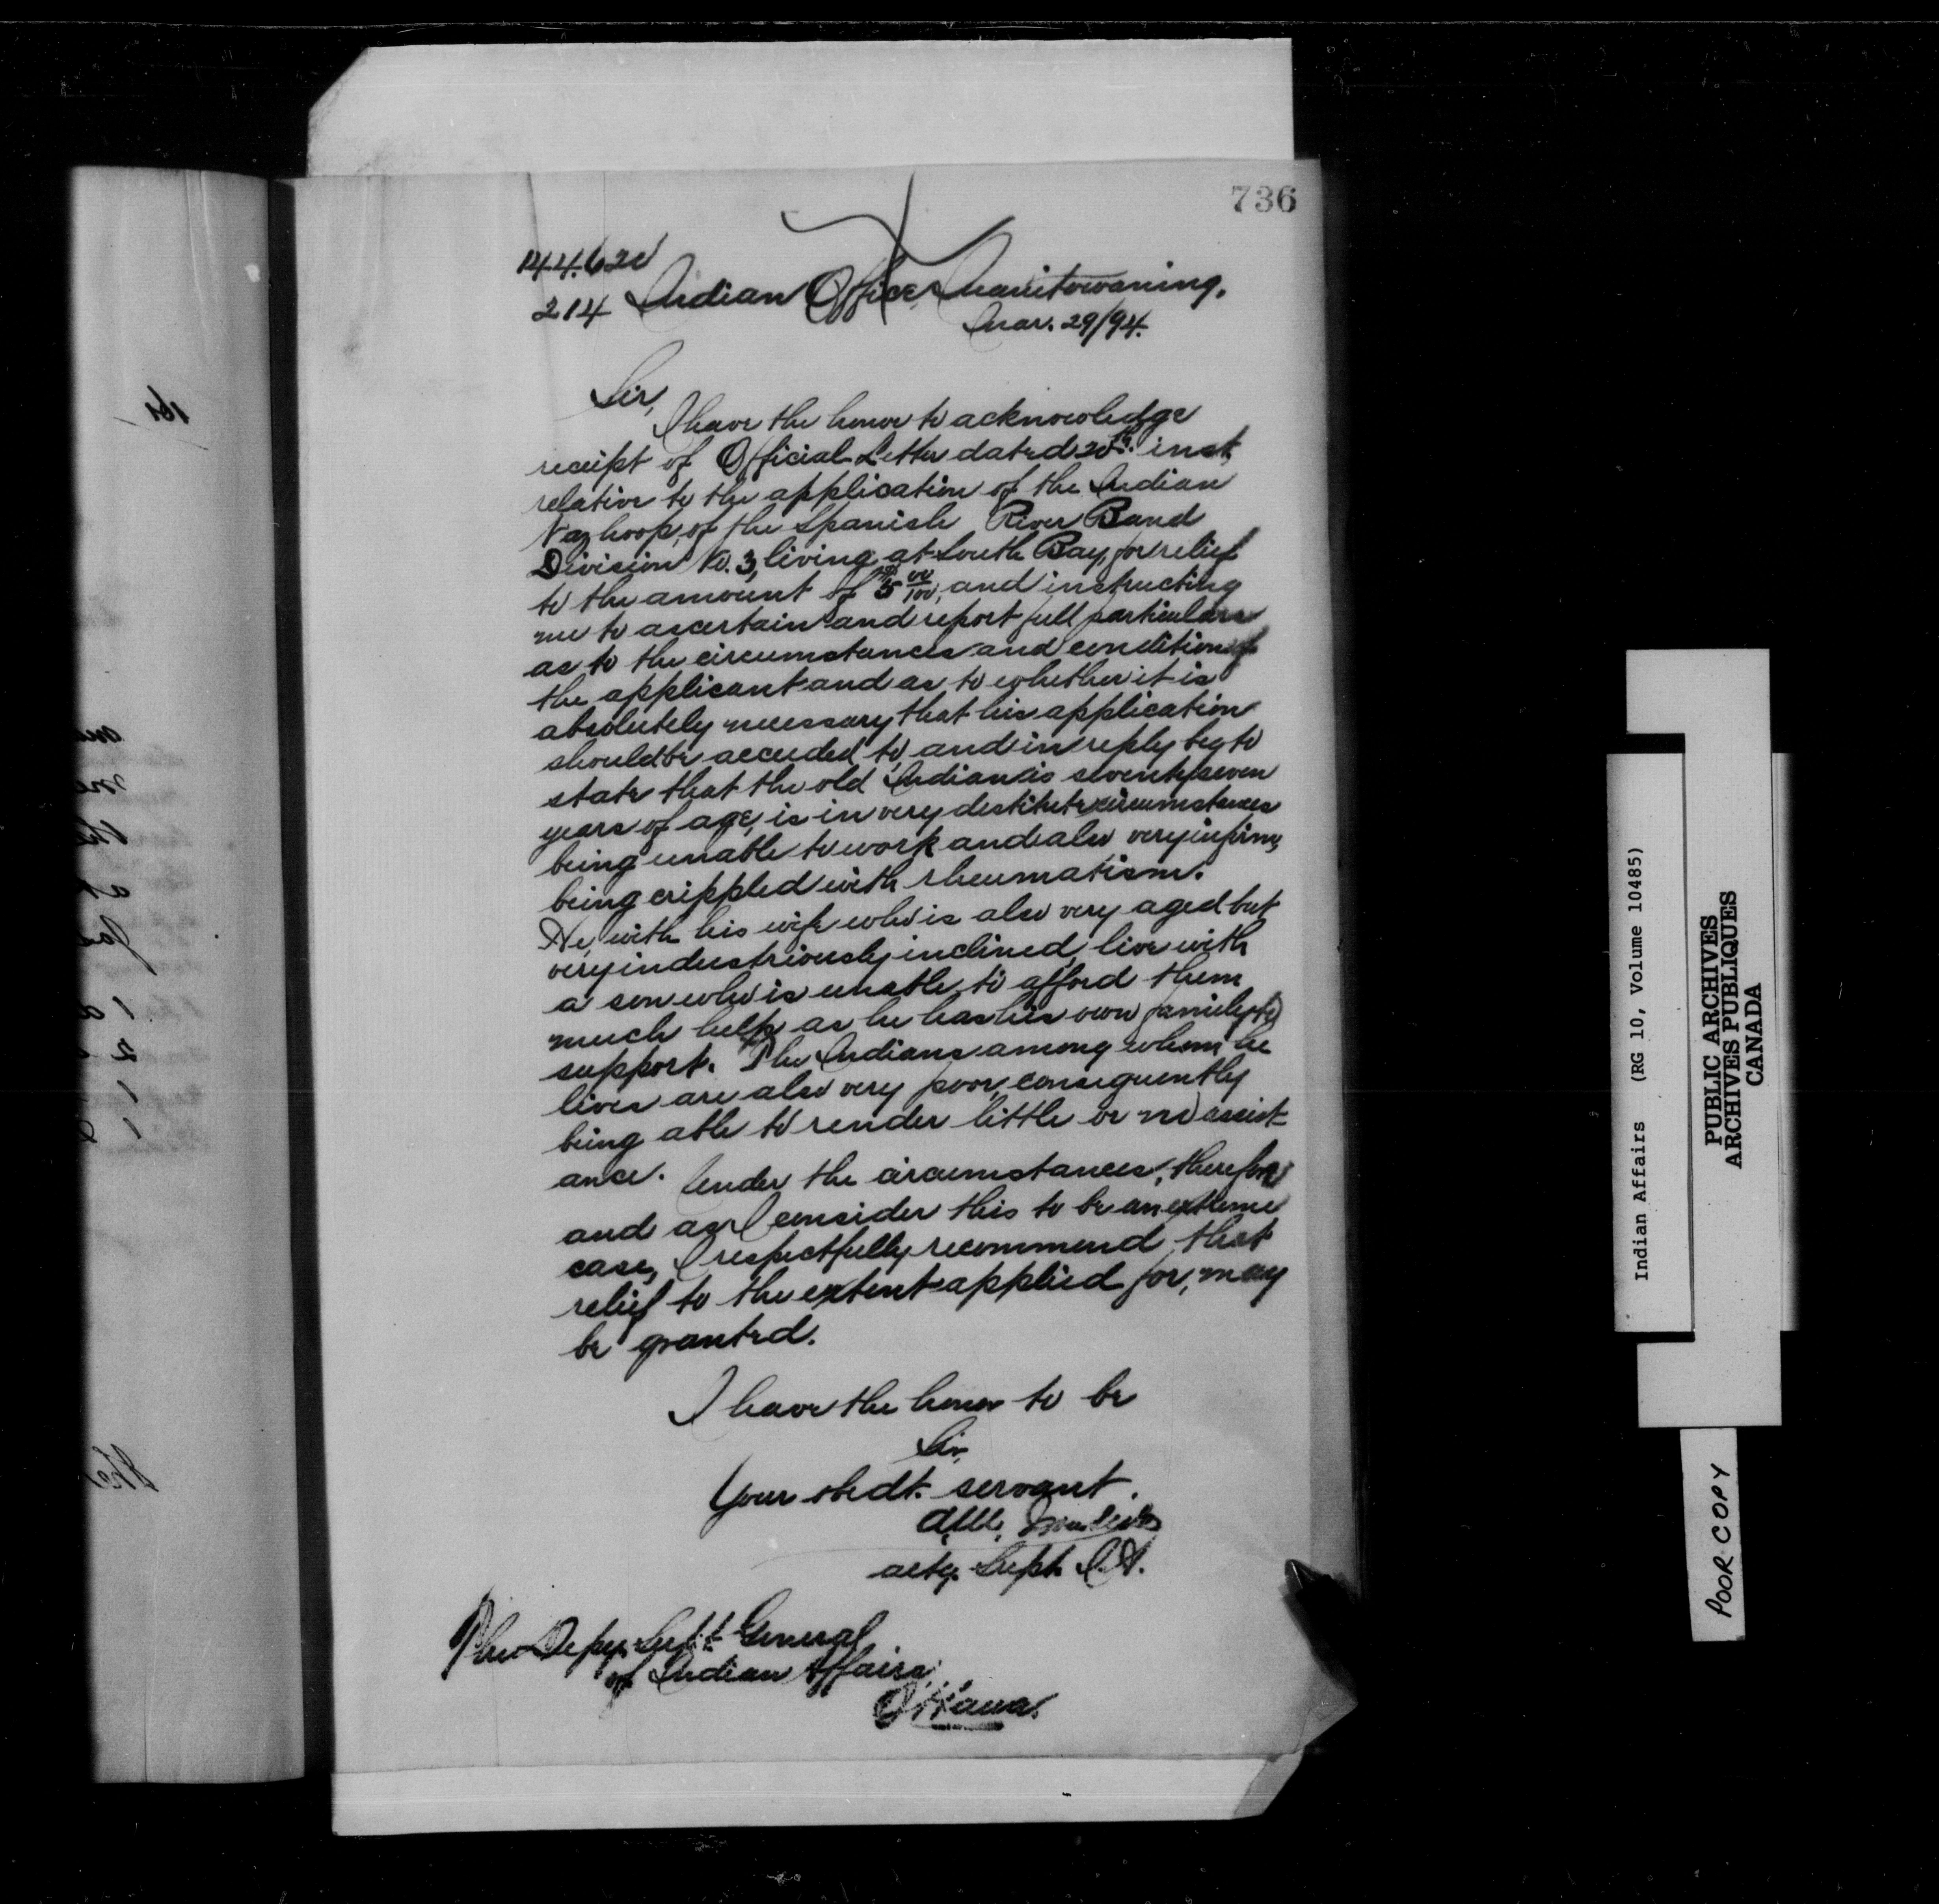 736
144.620
214 Indian Office, Manitowaning,
Mar. 29/94.
Sir,
I have the honor to acknowledge
receipt of Official Letter dated 20th. inst,
relative to the application of the Indian
of the Spanish River Band
Division No. 3, living at South Bay, for relief
to the amount of $5 00/100, and instructing
me to ascertain and report full particulars
as to the circumstances and condition of
the applicant and as to whether it is
absolutely necessary that his application
should be acceeded to, and in reply beg to
state that the old Indian is seventy seven
years of age, is in very destitute circumstances
being unable to work and also very infirm,
being crippled with rheumatism.
He, with his wife who is also very aged but
very industriously inclined, live with
a son who is unable to afford them
much help as he has his own family to
support. The Indians among whom he
lives are also very poor, consequently
being able to render little or no assist-
ance. Under the circumstances, therefore
and as I consider this to be an extreme
case, I respectfully recommend that
relief to the extent applied for, may
be granted.
I have the honor to be
Sir,
Your obedt. servant.
actg. Supt. I.A.
The Depy. Supt. General
of Indian Affairs
Ottawa.
Indian Affairs (RG 10, Volume 10485)
PUBLIC ARCHIVES
ARCHIVES PUBLIQUES
CANADA
POOR COPY